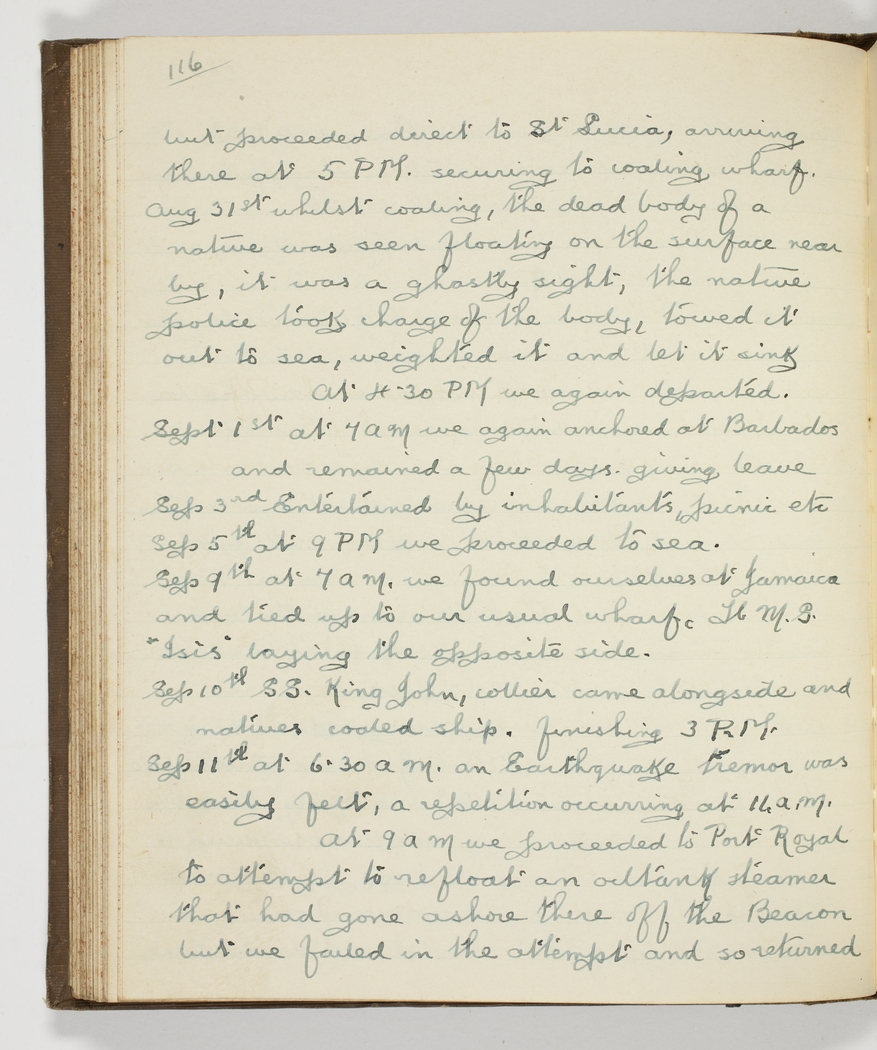 116
but proceeded direct to St Lucia, arriving
there at 5 PM. securing to coaling wharf.
Aug 31st whilst coaling, the dead body of a
native was seen floating on the surface near
by, it was a ghastly sight, the native
police took charge of the body, towed it
out to sea, weighted it and let it sink
At 4-30 PM we again departed.
Sept 1st at 7 a m we again anchored at Barbados
and remained a few days. giving leave
Sep 3rd Entertained by inhabitants, picnic etc
Sep 5th at 9 PM we proceeded to sea.
Sep 9th at 7 a m. we found ourselves at Jamaica
and tied up to our usual wharf. H M. S.
"Isis" laying the opposite side.
Sep 10th SS. King John, collier came alongside and
natives coaled ship. finishing 3 P.M.
Sep 11th at 6.30 a m. an Earthquake tremor was
easily felt, a repetition occurring at 11.a.m.
At 9 a m we proceeded to Port Royal
to attempt to refloat an oiltank steamer
that had gone ashore there off the Beacon
but we failed in the attempt and so returned